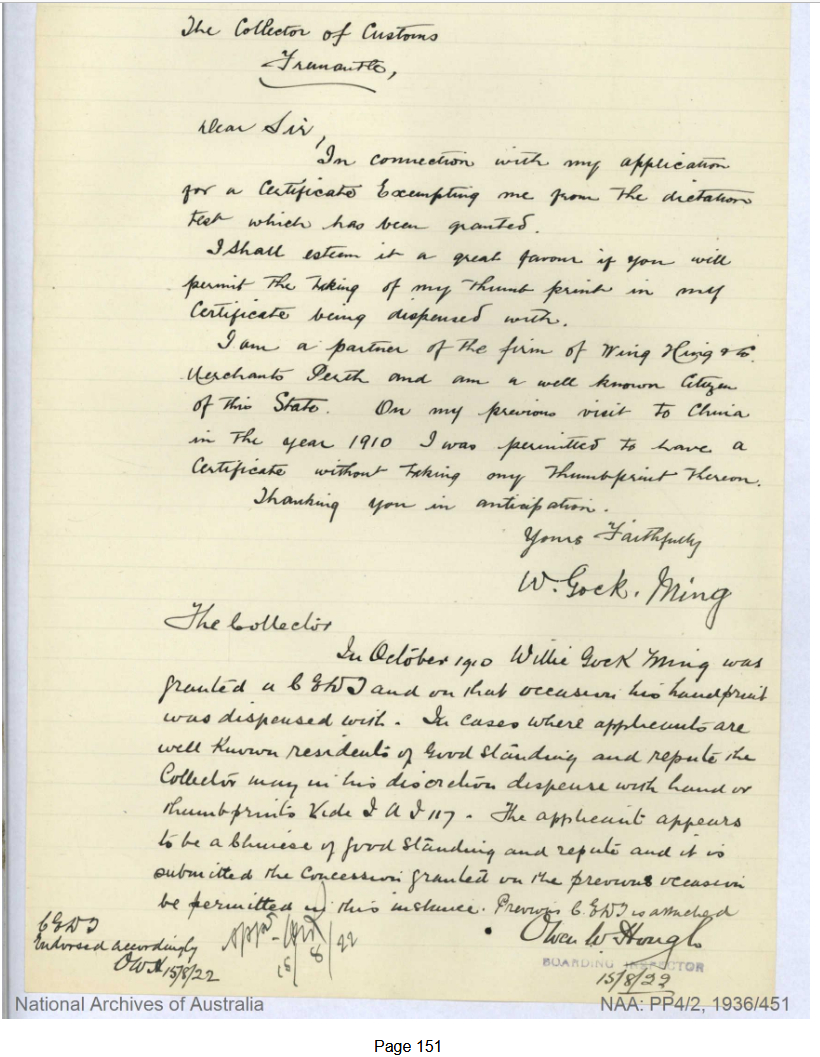 The Collector of Customs
Fremantle,
Dear Sir,
In connection with my application
for a Certificate Exempting me from the dictation
test which has been granted.
I shall esteem it a great favour if you will
permit the taking of my thumb print in my
Certificate being dispensed with.
I am a partner of the firm of Wing Hing & Co.
Merchants Perth and am a well known Citizen
of this State. On my previous visit to China
in the year 1910 I was permitted to have a
Certificate without taking my thumbprint thereon.
Thanking you in anticipation.
Yours Faithfully
W. Gock. Ming
The Collector
In October 1910 Willie Gock Ming was
granted a C E D T and on that occasion his handprint
was dispensed with. In cases where applicants are
well known residents of good standing and repute the
Collector may in his discretion dispense with hand or
thumbprints Vide I A I 117. The applicant appears
to be a Chinese of good standing and repute and it is
submitted the concession granted on the previous occasion
be permitted in this instance. Previous C.E.D.T is attached
Owen W Hough
BOARDING INSPECTOR
15/8/22
C E D T
Endorsed accordingly
OWH 15/8/22
Appd
15/8/22
National Archives of Australia
NAA: PP4/2, 1936/451
Page 151